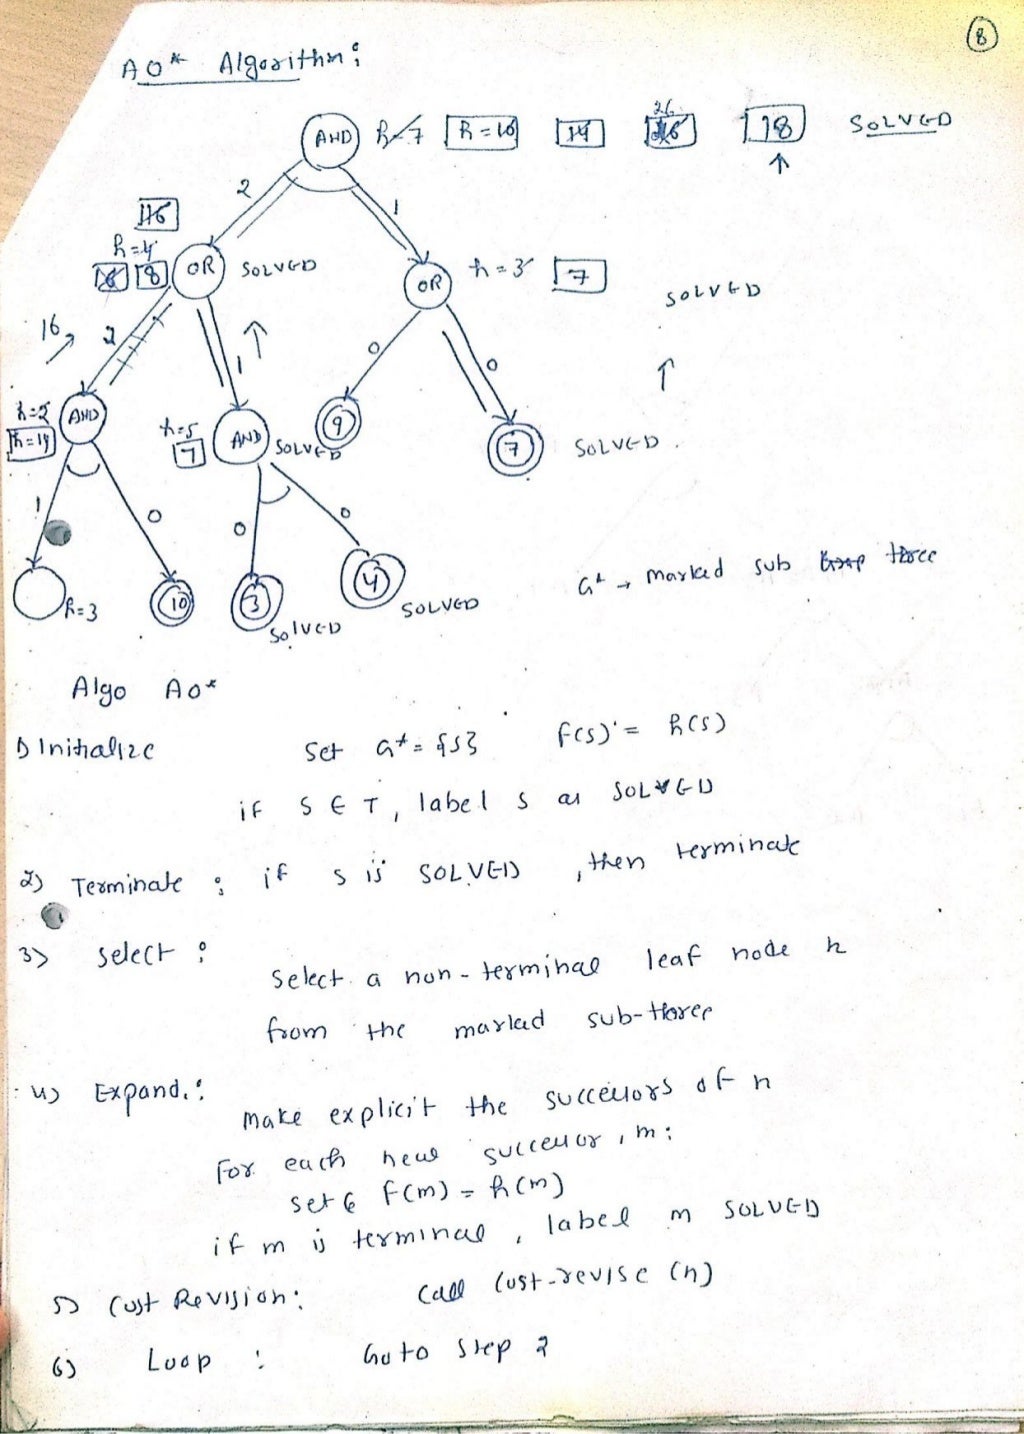 8
AO* Algorithm :
AND h=7 h=10 14 26 18 SOLVED
2 1
16
h=4 8 OR SOLVED
OR h=3 7
SOLVED
16 2 1 0 0
h=2 AND
h=14
h=5 AND SOLVED
7
9 7 SOLVED
1 0 0 0
h=3 10 3 4
SOLVED SOLVED
G* → marked sub tree
Algo AO*
1) Initialize Set G* = {S} f(s) = h(s)
if S ∈ T, label S as SOLVED
2) Terminate : if s is SOLVED , then terminate
3) Select :
Select a non-terminal leaf node n
from the marked sub-tree
4) Expand :
Make explicit the successors of n
For each new successor, m :
set f(m) = h(m)
if m is terminal, label m SOLVED
5) Cost Revision : Call Cost-revise (n)
6) Loop : Go to Step 2